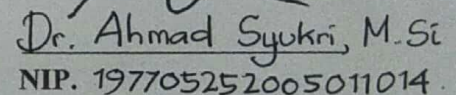 Dr. Ahmad Syukri, M.Si
NIP. 197705252005011014.